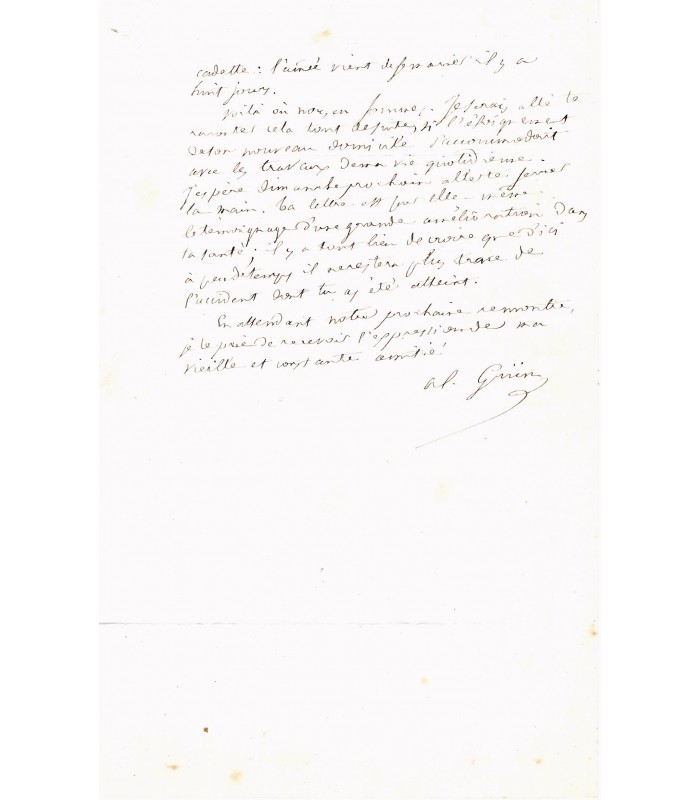 cadette : l'aînée vient de se marier il y a
huit jours.
Voilà où nous en sommes. Je serais allé te
raconter cela tout de suite, si l'éloignement
de ton nouveau domicile s'accommodait
avec les travaux de ma vie quotidienne.
J'espère dimanche prochain aller te serrer
la main. Ta lettre est par elle-même
le témoignage d'une grande amélioration dans
ta santé ; il y a tout lieu de croire que d'ici
à peu de temps il ne restera plus trace de
l'accident dont tu as été atteint.
En attendant notre prochaine rencontre,
je te prie de recevoir l'expression de ma
vieille et constante amitié
Al. Grün